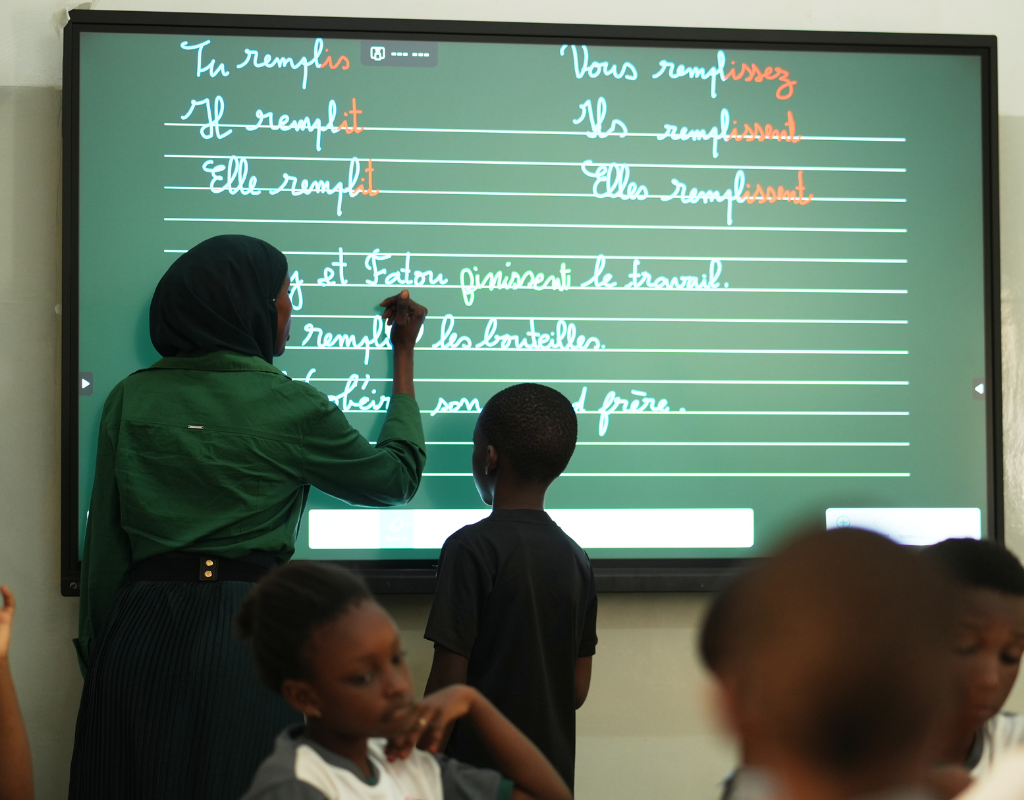 Tu remplis Vous remplissez
Il remplit Ils remplissent
Elle remplit Elles remplissent
et Fatou finissent le travail.
les bouteilles.
obéir son frère.